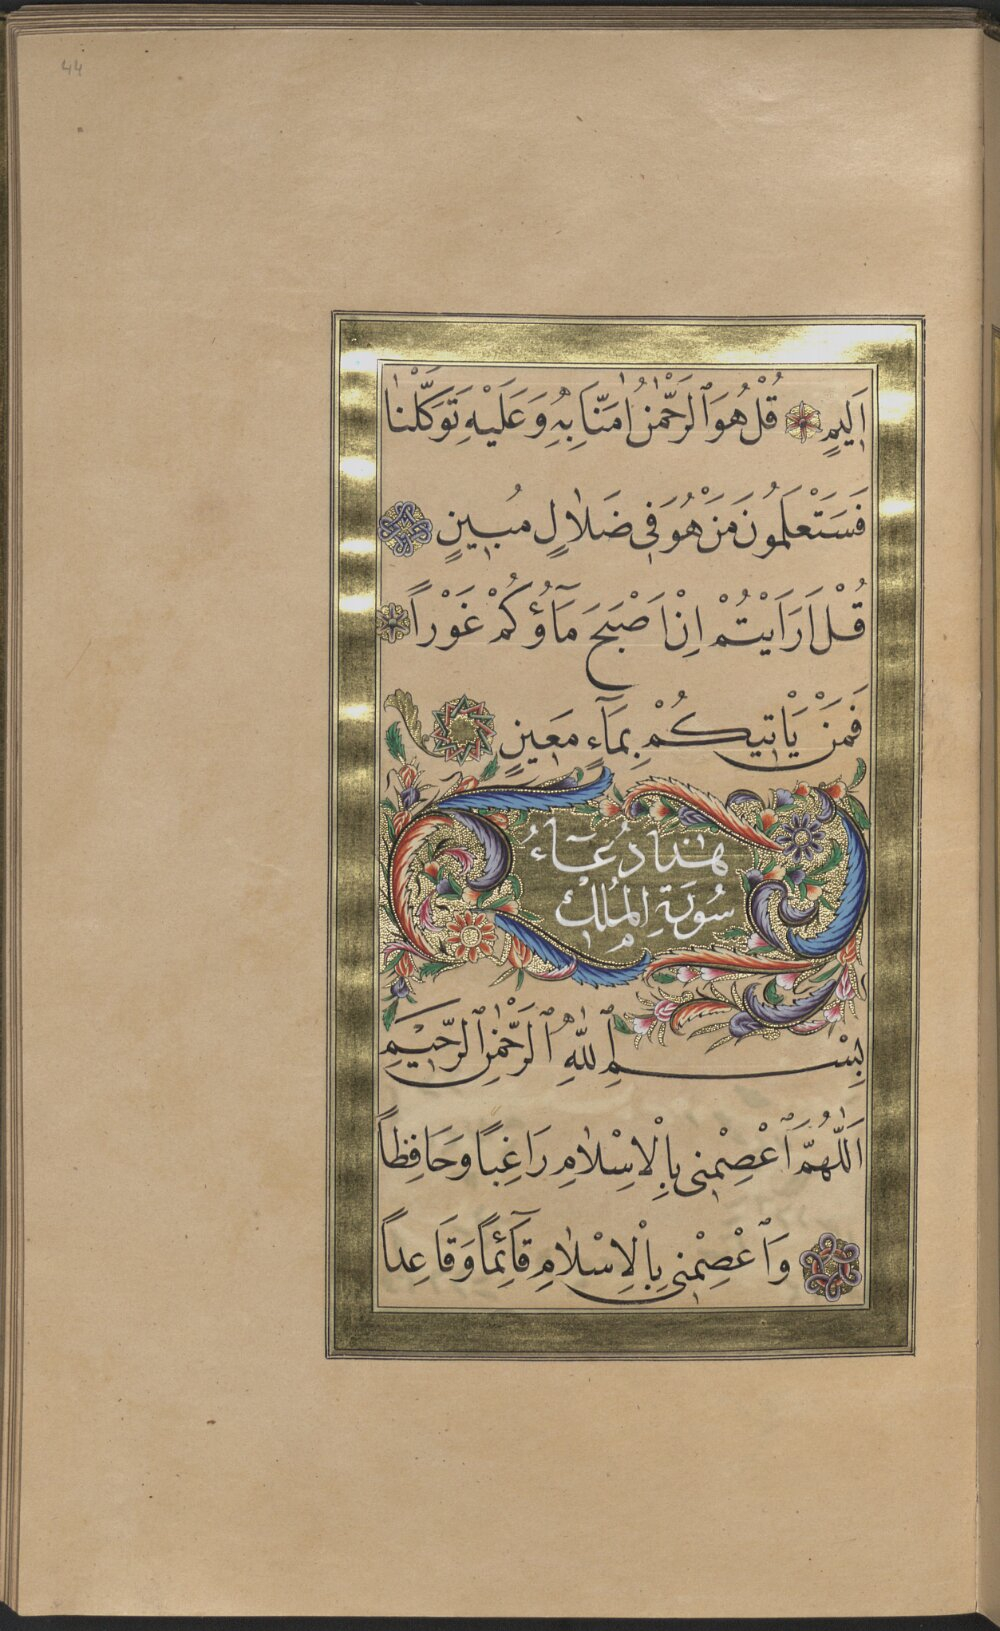 44
اَلِيمٍ قُلْ هُوَ ٱلرَّحْمٰنُ اٰمَنَّا بِهِ وَعَلَيْهِ تَوَكَّلْنَا
فَسَتَعْلَمُونَ مَنْ هُوَ فِى ضَلَالٍ مُبِينٍ
قُلْ اَرَاَيْتُمْ اِنْ اَصْبَحَ مَآؤُكُمْ غَوْراً
فَمَنْ يَاْتِيكُمْ بِمَآءٍ مَعِينٍ
هٰذَا دُعَآءُ
سُورَةِ الْمُلْكْ
بِسْمِ ٱللّٰهِ ٱلرَّحْمٰنِ ٱلرَّحِيمِ
اَللّٰهُمَّ ٱعْصِمْنِى بِالْاِسْلَامِ رَاغِبًا وَحَافِظاً
وَٱعْصِمْنِى بِالْاِسْلَامِ قَآئِمًا وَقَاعِداً